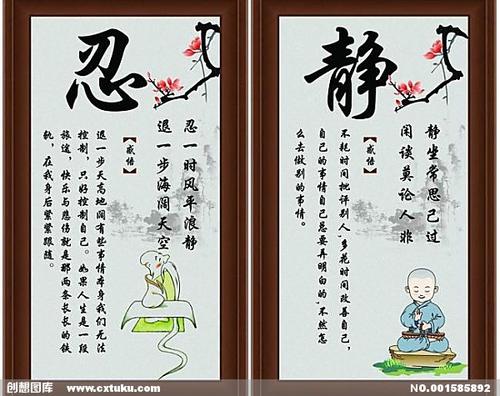 忍
忍一时风平浪静
退一步海阔天空
【感悟】
退一步天高地阔有些事情本身我们无法
控制，只好控制自己。如果人生是一段
旅途，快乐与悲伤就是那两条长长的铁
轨，在我身后紧紧跟随。
静
静坐常思己过
闲谈莫论人非
【感悟】
不耗时间批评别人，多花时间改善自己，
自己的事情自己总要弄明白的，不然怎
么去做别的事情。
创想图库 www.cxtuku.com
NO.001585892